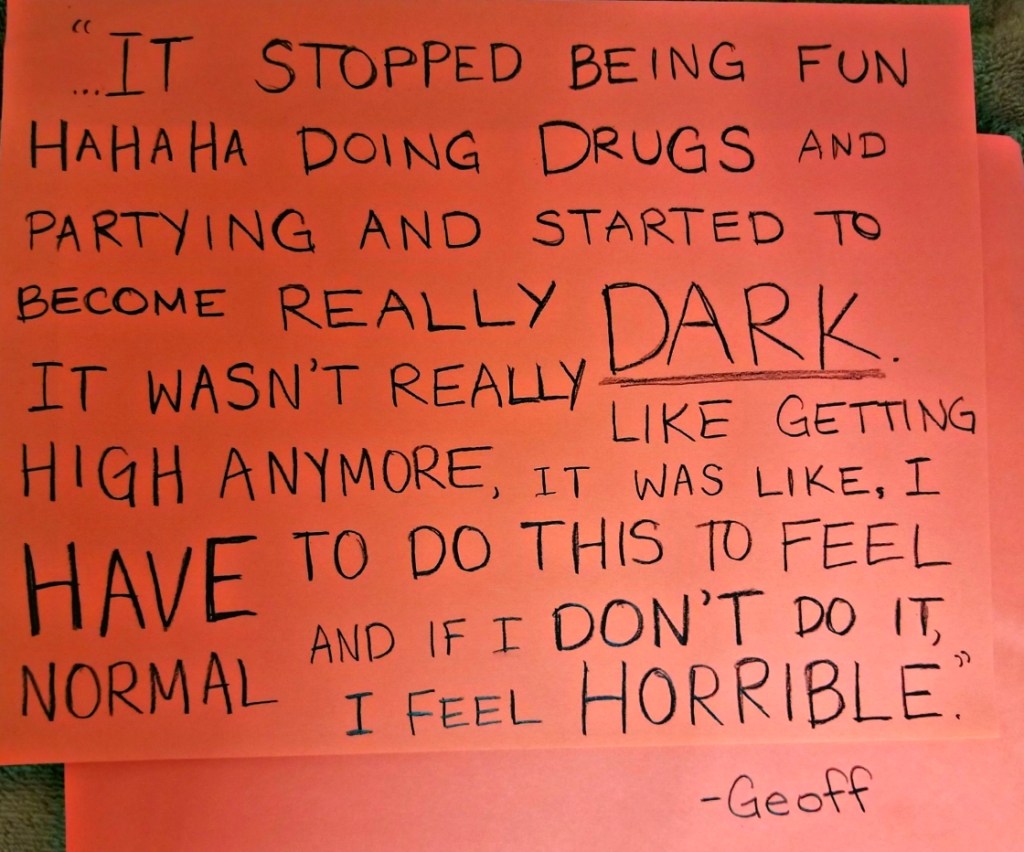 "...IT STOPPED BEING FUN
HAHAHA DOING DRUGS AND
PARTYING AND STARTED TO
BECOME REALLY DARK.
IT WASN'T REALLY LIKE GETTING
HIGH ANYMORE, IT WAS LIKE, I
HAVE TO DO THIS TO FEEL
NORMAL AND IF I DON'T DO IT,
I FEEL HORRIBLE."
-Geoff